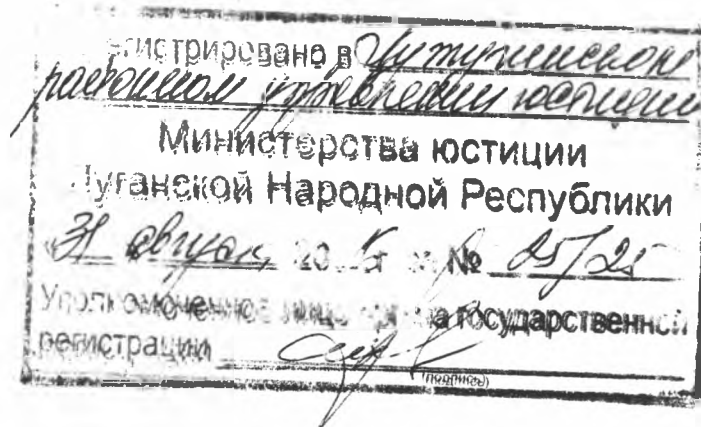 гистрировано в Лутугинском
районном управлении юстиции
Министерства юстиции
Луганской Народной Республики
«31 август 20 г № 25/25
Уполномоченное лицо а государственной
регистрации
(подпись)